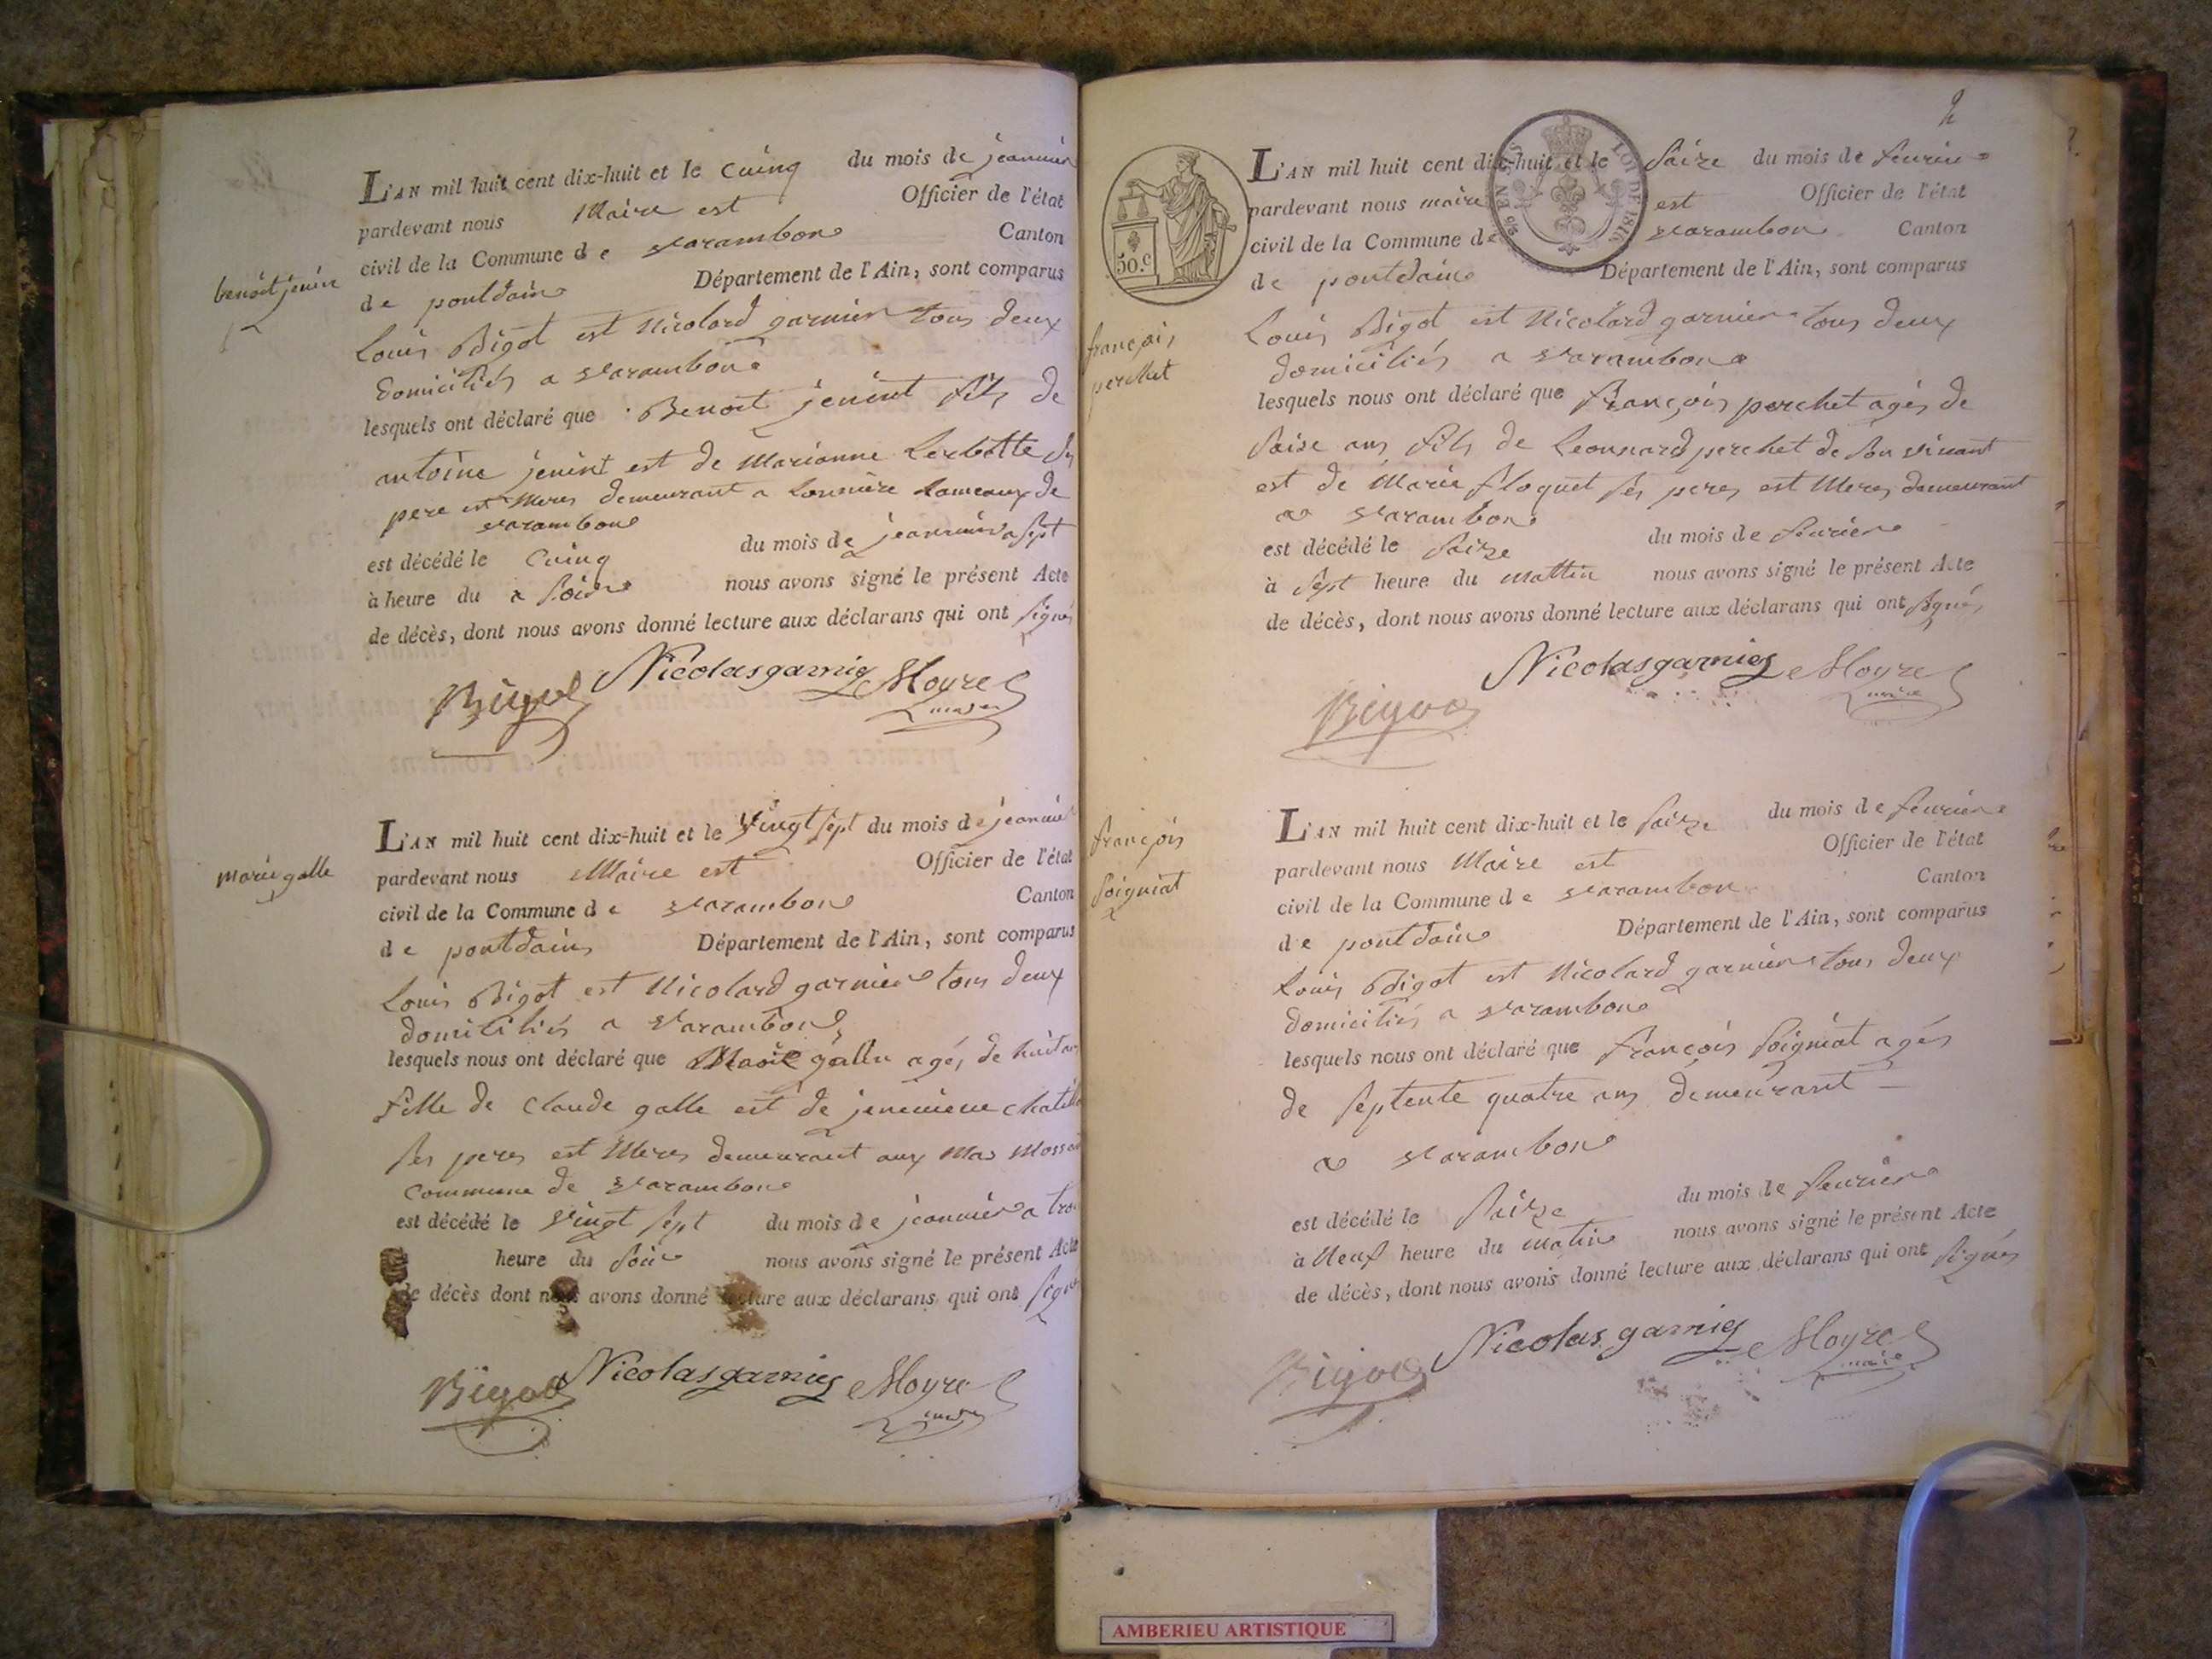 benoit jenin
L'AN mil huit cent dix-huit et le cuinq du mois de jeanuier
pardevant nous Maire est Officier de l'état
civil de la Commune de varambon Canton
de pontdain Département de l'Ain, sont comparus
Louis Bigot est Nicolard garnier tous deux
domiciliés a varambon
lesquels ont déclaré que Benoit jenint fils de
antoine jenint est de Marianne
pere est Meres demeurant a hameaux de
varambon
est décédé le cuinq du mois de jeanuier a sept
à heure du a soire nous avons signé le présent Acte
de décès, dont nous avons donné lecture aux déclarans qui ont signés
Bigot Nicolas garnier Moyret
maire
marie galle
L'AN mil huit cent dix-huit et le vingt sept du mois de jeanuier
pardevant nous Maire est Officier de l'état
civil de la Commune de varambon Canton
de pontdain Département de l'Ain, sont comparus
Louis Bigot est Nicolard garnier tous deux
domiciliés a varambon
lesquels nous ont déclaré que Marie galle agés de huit ans
fille de Claude galle est de jeneuieue
ses peres est Meres demeurant aux Mas
commune de varambon
est décédé le vingt sept du mois de jeanuier a trois
heure du soire nous avons signé le présent Acte
de décès dont nous avons donné lecture aux déclarans qui ont signés
Bigot Nicolas garnier Moyret
maire
2
50.c
EN SUS
LOI DE 1816
françois
perchet
L'AN mil huit cent dix-huit et le saize du mois de feurier
pardevant nous maire est Officier de l'état
civil de la Commune de varambon Canton
de pontdain Département de l'Ain, sont comparus
Louis Bigot est Nicolard garnier tous deux
domiciliés a varambon
lesquels nous ont déclaré que françois perchet agés de
saise ans fils de Leonnard perchet de son viuant
est de Marie floquet ses peres est Meres demeurant
a varambon
est décédé le saize du mois de feurier
à sept heure du mattin nous avons signé le présent Acte
de décès, dont nous avons donné lecture aux déclarans qui ont signés
Bigot Nicolas garnier Moyret
maire
françois
soigniat
L'AN mil huit cent dix-huit et le saize du mois de feurier
pardevant nous Maire est Officier de l'état
civil de la Commune de varambon Canton
de pontdain Département de l'Ain, sont comparus
Louis Bigot est Nicolard garnier tous deux
domiciliés a varambon
lesquels nous ont déclaré que françois soigniat agés
de septente quatre ans demeurant
a varambon
est décédé le saize du mois de feurier
à Neuf heure du matin nous avons signé le présent Acte
de décès, dont nous avons donné lecture aux déclarans qui ont signés
Bigot Nicolas garnier Moyret
maire
AMBERIEU ARTISTIQUE